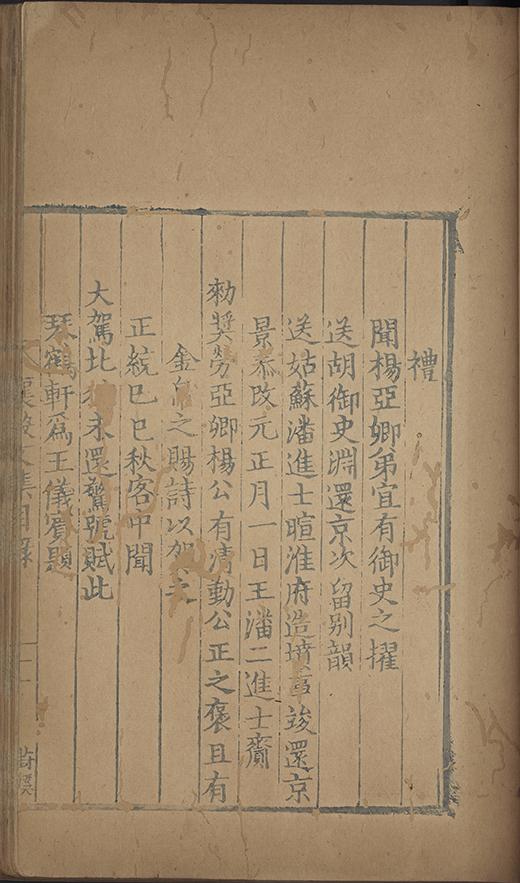 禮
聞楊亞卿弟宜有御史之擢
送胡御史淵還京次留别韻
送姑蘇潘進士暄淮府造墳事竣還京
景泰改元正月一日王潘二進士齎
勑奬勞亞卿楊公有清勤公正之褒且有
金帛之賜詩以賀之
正統己巳秋客中聞
大駕北狩未還驚號賦此
琴鶴軒爲王儀賓題
襄毅文集目錄